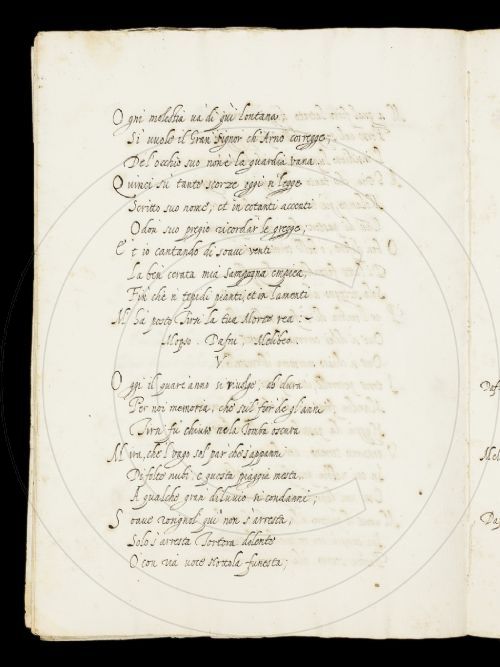 Ogni molestia và di quì lontana
Sì vuole il Gran Signor ch'Arno corregge;
Del'occhio suo non è la guardia vana.
Quinci sù tante scorze oggi si legge
Scritto suo nome, et in cotanti accenti
Odon' suo pregio ricordar' le gregge;
Et io cantando di soavi venti
La ben' cerata mia Sampogna empiea,
Fin' che 'n tepidi pianti, et in lamenti
M'hà posto Tirsi la tua Morte rea:~
Mopso. Dafni. Melibeo.
V
Oggi il quart'anno si rivolge, ahi dura
Per noi memoria, che sul fior' de gl'anni
Tirsi fù chiuso nela Tomba oscura
Mira, che l'vago sol par' che s'appanni
Di folte nubi, e questa piaggia mesta
A qualche gran diluvio si condanni;
Soave Rosignol' quì non s'arresta,
Solo s'arresta Tortora dolente
O con ria voce Nottola funesta;
Daf
Mel
Daf